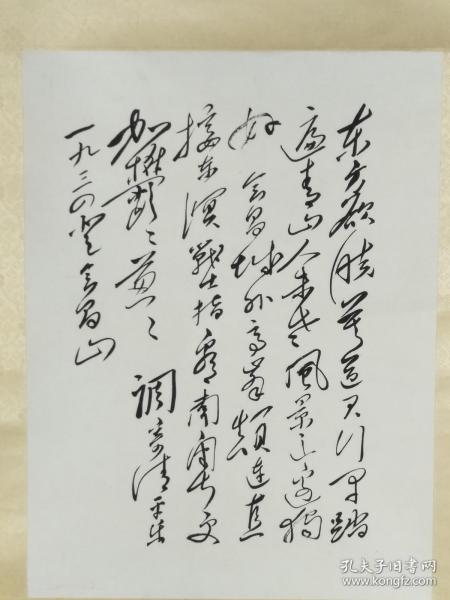 东方欲晓莫道君行早踏
遍青山人未老風景这边独
好 会昌城外高峯颠连直
接东溟戰士指看南粤更
加鬱〻葱〻 調寄清平乐
一九三四登会昌山
孔夫子旧书网
www.kongfz.com